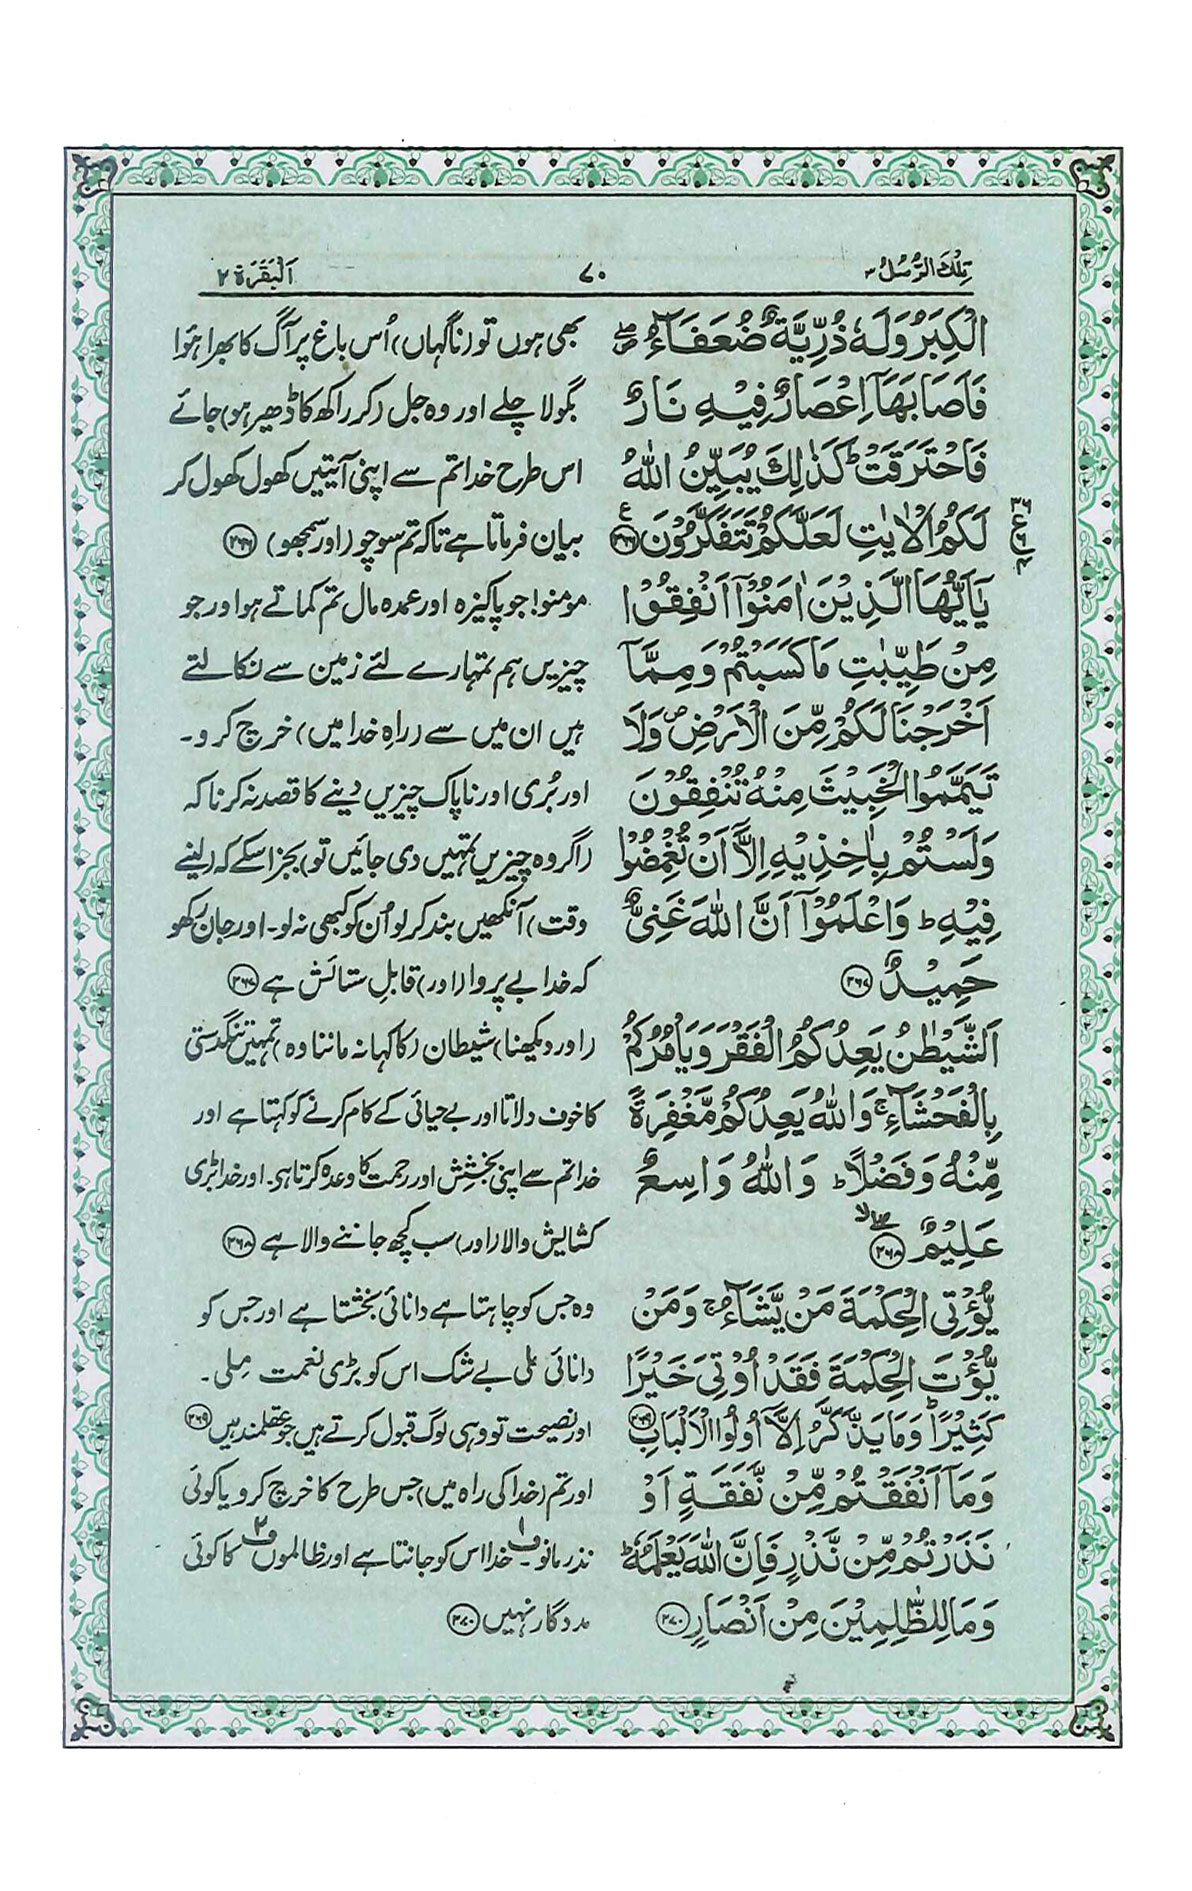 تِلْكَ الرُّسُلُ ۳
۷۰
اَلْبَقَرَة ۲
الْكِبَرُ وَلَهٗ ذُرِّيَّةٌ ضُعَفَآءُ ۖ
فَاَصَابَهَاۤ اِعْصَارٌ فِيْهِ نَارٌ
فَاحْتَرَقَتْ ؕ كَذٰلِكَ يُبَيِّنُ اللّٰهُ
لَكُمُ الْاٰيٰتِ لَعَلَّكُمْ تَتَفَكَّرُوْنَ ﴿۲۶۶﴾ ع
يٰۤاَيُّهَا الَّذِيْنَ اٰمَنُوْۤا اَنْفِقُوْا
مِنْ طَيِّبٰتِ مَا كَسَبْتُمْ وَمِمَّاۤ
اَخْرَجْنَا لَكُمْ مِّنَ الْاَرْضِ ۪ وَلَا
تَيَمَّمُوا الْخَبِيْثَ مِنْهُ تُنْفِقُوْنَ
وَلَسْتُمْ بِاٰخِذِيْهِ اِلَّاۤ اَنْ تُغْمِضُوْا
فِيْهِ ؕ وَاعْلَمُوْۤا اَنَّ اللّٰهَ غَنِيٌّ
حَمِيْدٌ ﴿۲۶۷﴾
اَلشَّيْطٰنُ يَعِدُكُمُ الْفَقْرَ وَيَاْمُرُكُمْ
بِالْفَحْشَآءِ ۚ وَاللّٰهُ يَعِدُكُمْ مَّغْفِرَةً
مِّنْهُ وَفَضْلًا ؕ وَاللّٰهُ وَاسِعٌ
عَلِيْمٌ ﴿۲۶۸﴾
يُّؤْتِي الْحِكْمَةَ مَنْ يَّشَآءُ ۚ وَمَنْ
يُّؤْتَ الْحِكْمَةَ فَقَدْ اُوْتِيَ خَيْرًا
كَثِيْرًا ؕ وَمَا يَذَّكَّرُ اِلَّاۤ اُولُوا الْاَلْبَابِ ﴿۲۶۹﴾
وَمَاۤ اَنْفَقْتُمْ مِّنْ نَّفَقَةٍ اَوْ
نَذَرْتُمْ مِّنْ نَّذْرٍ فَاِنَّ اللّٰهَ يَعْلَمُهٗ ؕ
وَمَا لِلظّٰلِمِيْنَ مِنْ اَنْصَارٍ ﴿۲۷۰﴾
بھی ہوں تو (ناگہاں) اُس باغ پر آگ کا بھرا ہوا
بگولا چلے اور وہ جل (کر راکھ کا ڈھیر ہو) جائے
اس طرح خدا تم سے اپنی آیتیں کھول کھول کر
بیان فرماتا ہے تاکہ تم سوچو (اور سمجھو) ﴿۲۶۶﴾
مومنو! جو پاکیزہ اور عمدہ مال تم کماتے ہو اور جو
چیزیں ہم تمہارے لئے زمین سے نکالتے
ہیں ان میں سے (راہِ خدا میں) خرچ کرو۔
اور بُری اور ناپاک چیزیں دینے کا قصد نہ کرنا کہ
(اگر وہ چیزیں تمہیں دی جائیں تو) بجز اسکے کہ (لینے
وقت) آنکھیں بند کر لو اُن کو کبھی نہ لو۔ اور جان رکھو
کہ خدا بے پروا (اور) قابلِ ستائش ہے ﴿۲۶۷﴾
(اور دیکھنا) شیطان (کا کہا نہ ماننا وہ) تمہیں تنگدستی
کا خوف دلاتا اور بے حیائی کے کام کرنے کو کہتا ہے اور
خدا تم سے اپنی بخشش اور رحمت کا وعدہ کرتا ہی۔ اور خدا بڑی
کشایش والا (اور) سب کچھ جاننے والا ہے ﴿۲۶۸﴾
وہ جس کو چاہتا ہے دانائی بخشتا ہے اور جس کو
دانائی ملی بے شک اس کو بڑی نعمت مِلی۔
اور نصیحت تو وہی لوگ قبول کرتے ہیں جو عقلمند ہیں ﴿۲۶۹﴾
اور تم (خدا کی راہ میں) جس طرح کا خرچ کرو یا کوئی
نذر مانو ف۱ خدا اس کو جانتا ہے اور ظالموں ف۲ کا کوئی
مددگار نہیں ﴿۲۷۰﴾